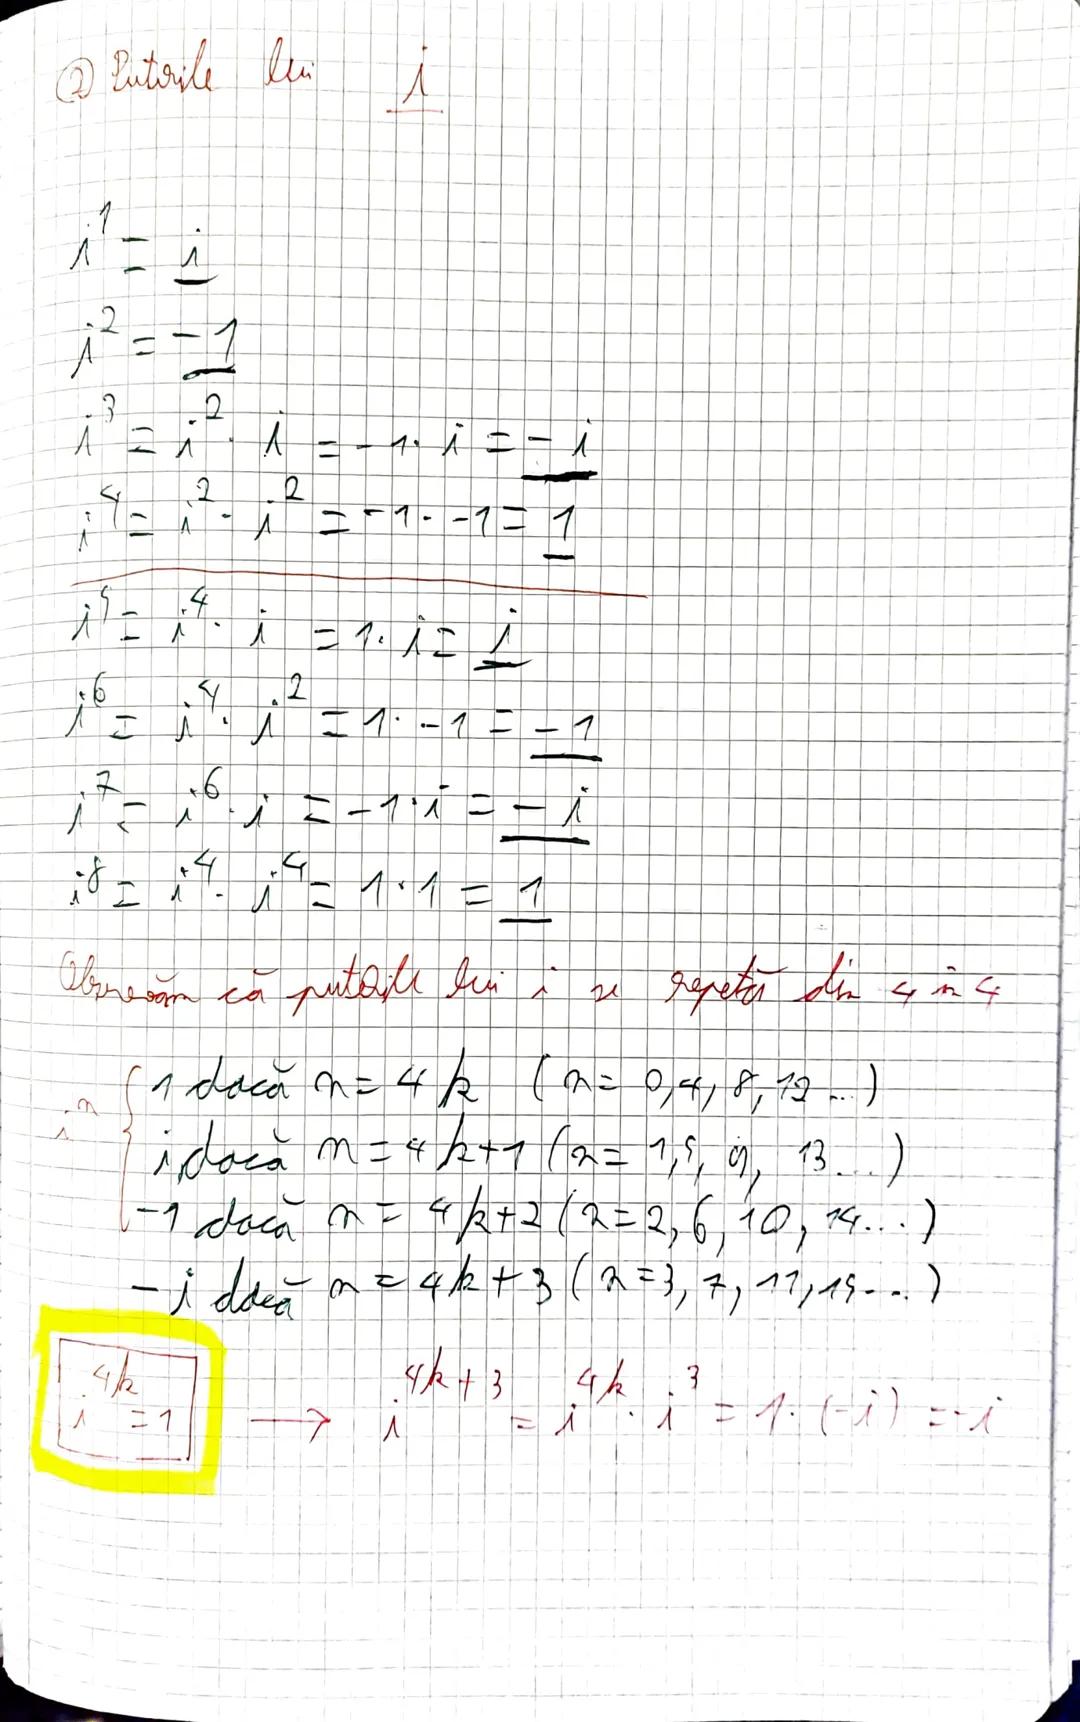 ② Puterile lui i
i¹ = i
i² = -1
i³ = i² · i = -1 · i = -i
i⁴ = i² · i² = -1 · -1 = 1
i⁵ = i⁴ · i = 1 · i = i
i⁶ = i⁴ · i² = 1 · -1 = -1
i⁷ = i⁶ · i = -1 · i = -i
i⁸ = i⁴ · i⁴ = 1 · 1 = 1
Observăm că puterile lui i se repetă din 4 în 4
iⁿ { 1 dacă n = 4k (n = 0, 4, 8, 12...)
i, dacă n = 4k+1 (n = 1, 5, 9, 13...)
-1 dacă n = 4k+2 (n = 2, 6, 10, 14...)
-i dacă n = 4k+3 (n = 3, 7, 11, 15...)
i⁴ᵏ = 1 → i⁴ᵏ⁺³ = i⁴ᵏ · i³ = 1 · (-i) = -i